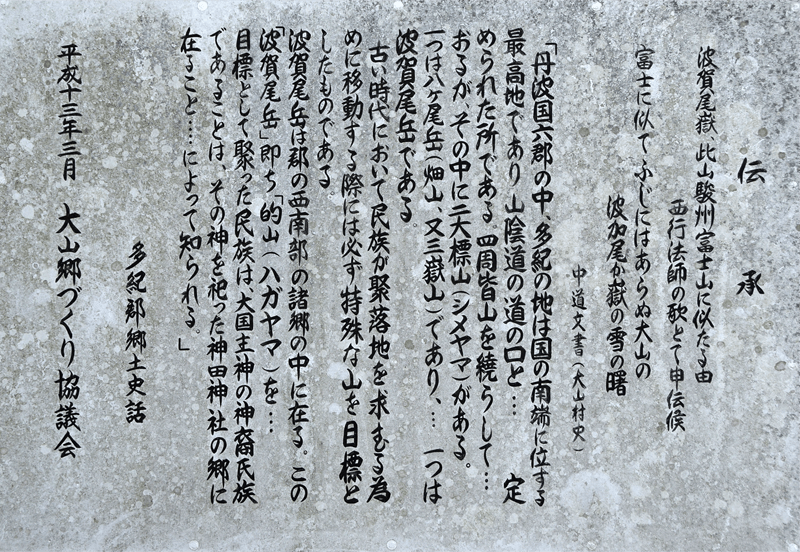 伝承
波賀尾嶽、此山駿州富士山に似たる由
西行法師の歌とて申伝候
富士に似てふじにはあらぬ大山の
波加尾が嶽の雪の曙
中道文書(大山村史)
「丹波国六郡の中、多紀の地は国の南端に位する
最高地であり山陰道の道の口と…定
められた所である 四周皆山を繞らして…
おるが、その中に二大標山(シメヤマ)がある。
一つは八ヶ尾岳(畑山、又三嶽山)であり、… 一つは
波賀尾岳である。
古い時代において民族が聚落地を求むる為
めに移動する際には必ず特殊な山を目標と
したものである。
波賀尾岳は郡の西南部の諸郷の中に在る。この
「波賀尾岳」即ち「的山(ハガヤマ)を…
目標として聚った民族は大国主神の神裔氏族
であることは、その神を祀った神田神社の郷に
在ること……によって知られる。」
多紀郡郷土史話
平成十三年三月 大山郷づくり協議会